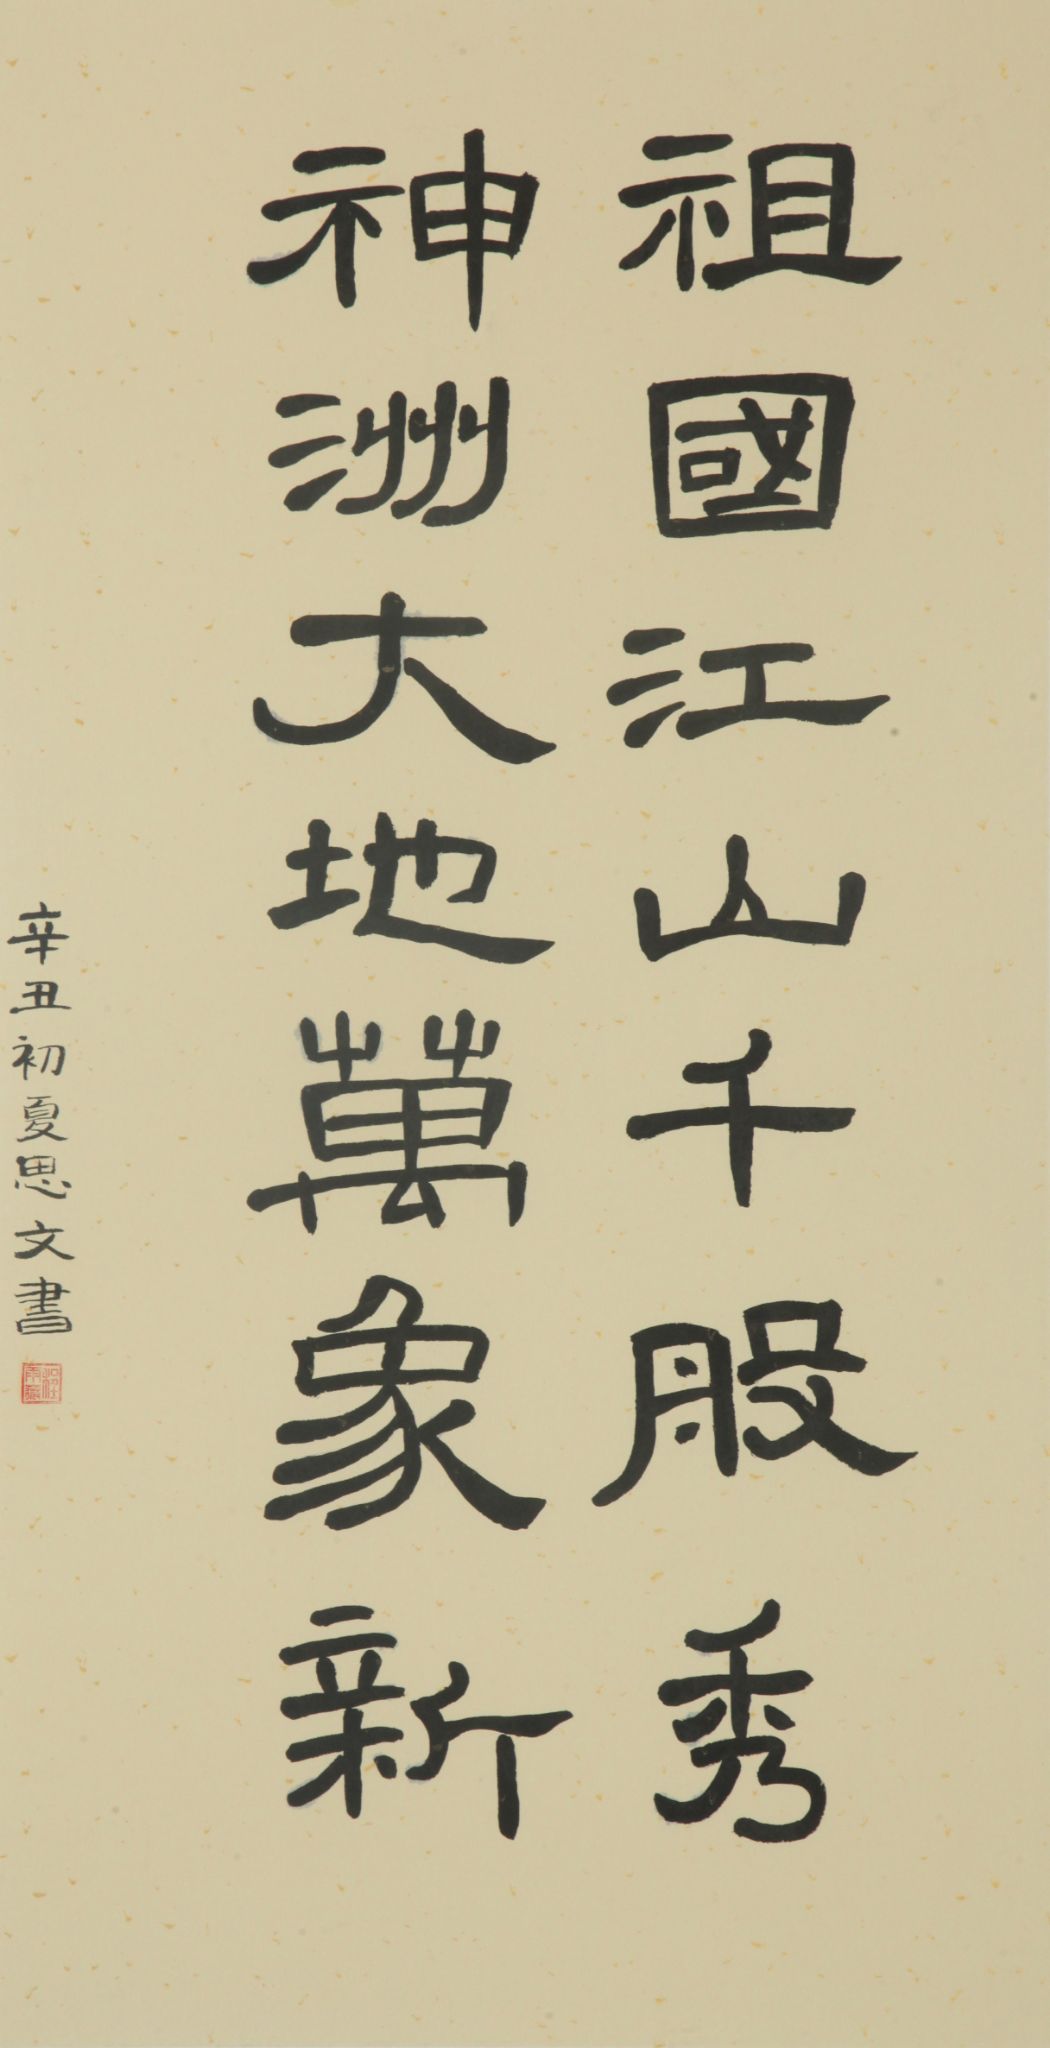 祖國江山千般秀
神洲大地萬象新
辛丑初夏思文書